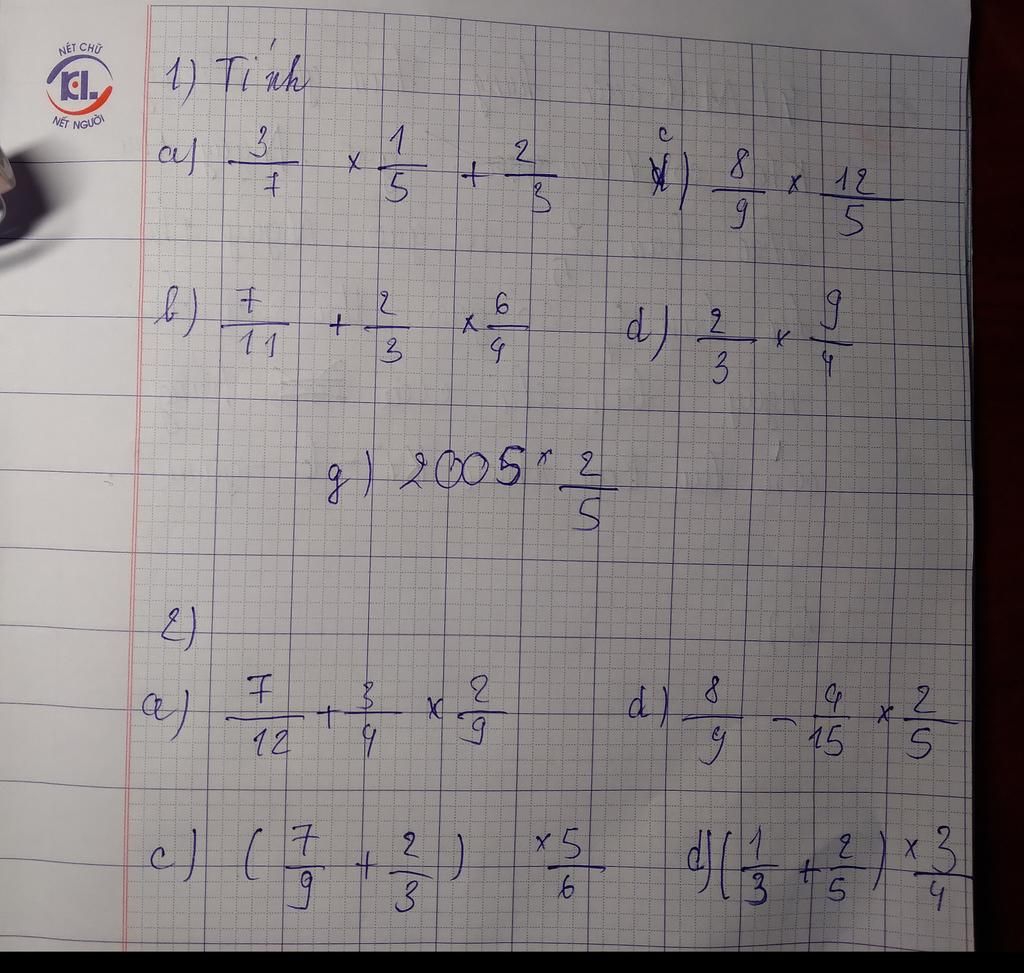 NÉT CHỮ
KL.
NẾT NGƯỜI
1) Tính
a) 3/7 × 1/5 + 2/3
c) 8/9 × 12/5
b) 7/11 + 2/3 × 6/4
d) 2/3 × 9/4
g) 2005 × 2/5
2)
a) 7/12 + 3/4 × 2/9
d) 8/9 - 4/15 × 2/5
c) (7/9 + 2/3) × 5/6
d) (1/3 + 2/5) × 3/4